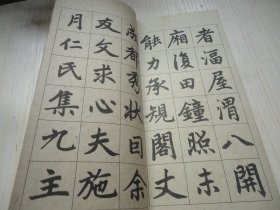 者湢屋渭八開
廂復田鐘照未
能力承規閣丈
都秀狀曰余
友文求心夫施
月仁民集九主